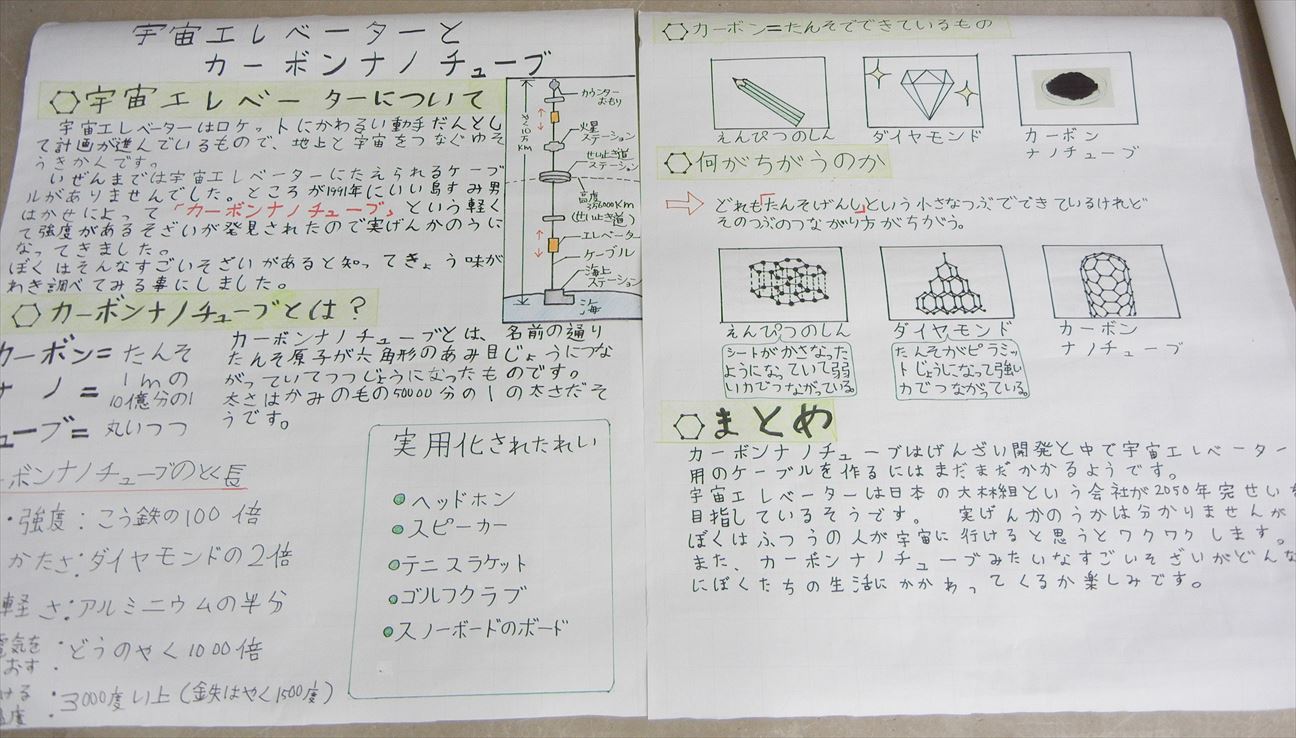 宇宙エレベーターと
カーボンナノチューブ
宇宙エレベーターについて
宇宙エレベーターはロケットにかわるい動手だんとし
て計画が進んでいるもので、地上と宇宙をつなぐゆそ
うきかんです。
いぜんまでは宇宙エレベーターにたえられるケーブ
ルがありませんでした。ところが1991年にいい島すみ男
はかせによって「カーボンナノチューブ」という軽く
て強度があるそざいが発見されたので実げんかのうに
なってきました。
ぼくはそんなすごいそざいがあると知ってきょう味が
わき調べてみる事にしました。
やく10万KM
カウンター
おもり
火星
ステーション
せい止き道
ステーション
高度
(せい止き道)
エレベータ
ケーブル
海上
ステーション
海
カーボンナノチューブとは?
カーボン=たんそ
ナノ=1mの
10億分の1
ューブ=丸いつつ
カーボンナノチューブとは、名前の通り
たんそ原子が六角形のあみ目じょうにつな
がっていてつつじょうになったものです。
太さはかみの毛の50000分の1の太さだそ
うです。
ーボンナノチューブのとく長
・強度:こう鉄の100倍
かたさ:ダイヤモンドの2倍
軽さ:アルミニウムの半分
電気を
おす
:どうのやく1000倍
ける
温度
:3000度い上(鉄はやく1500度)
実用化されたれい
ヘッドホン
スピーカー
テニスラケット
ゴルフクラブ
スノーボードのボード
カーボン=たんそでできているもの
えんぴつのしん
ダイヤモンド
カーボン
ナノチューブ
何がちがうのか
どれも「たんそげんし」という小さなつぶでできているけれど
そのつぶのつながり方がちがう。
えんぴつのしん
シートがかさなった
ようになっていて弱
い力でつながっている。
ダイヤモンド
たんそがピラミッ
トじょうになって強い
力でつながっている。
カーボン
ナノチューブ
まとめ
カーボンナノチューブはげんざい開発と中で宇宙エレベーター
用のケーブルを作るにはまだまだかかるようです。
宇宙エレベーターは日本の大林組という会社が2050年完せいを
目指しているそうです。実げんかのうかは分かりませんが
ぼくはふつうの人が宇宙に行けると思うとワクワクします。
また、カーボンナノチューブみたいなすごいそざいがどんな
にぼくたちの生活にかかわってくるか楽しみです。